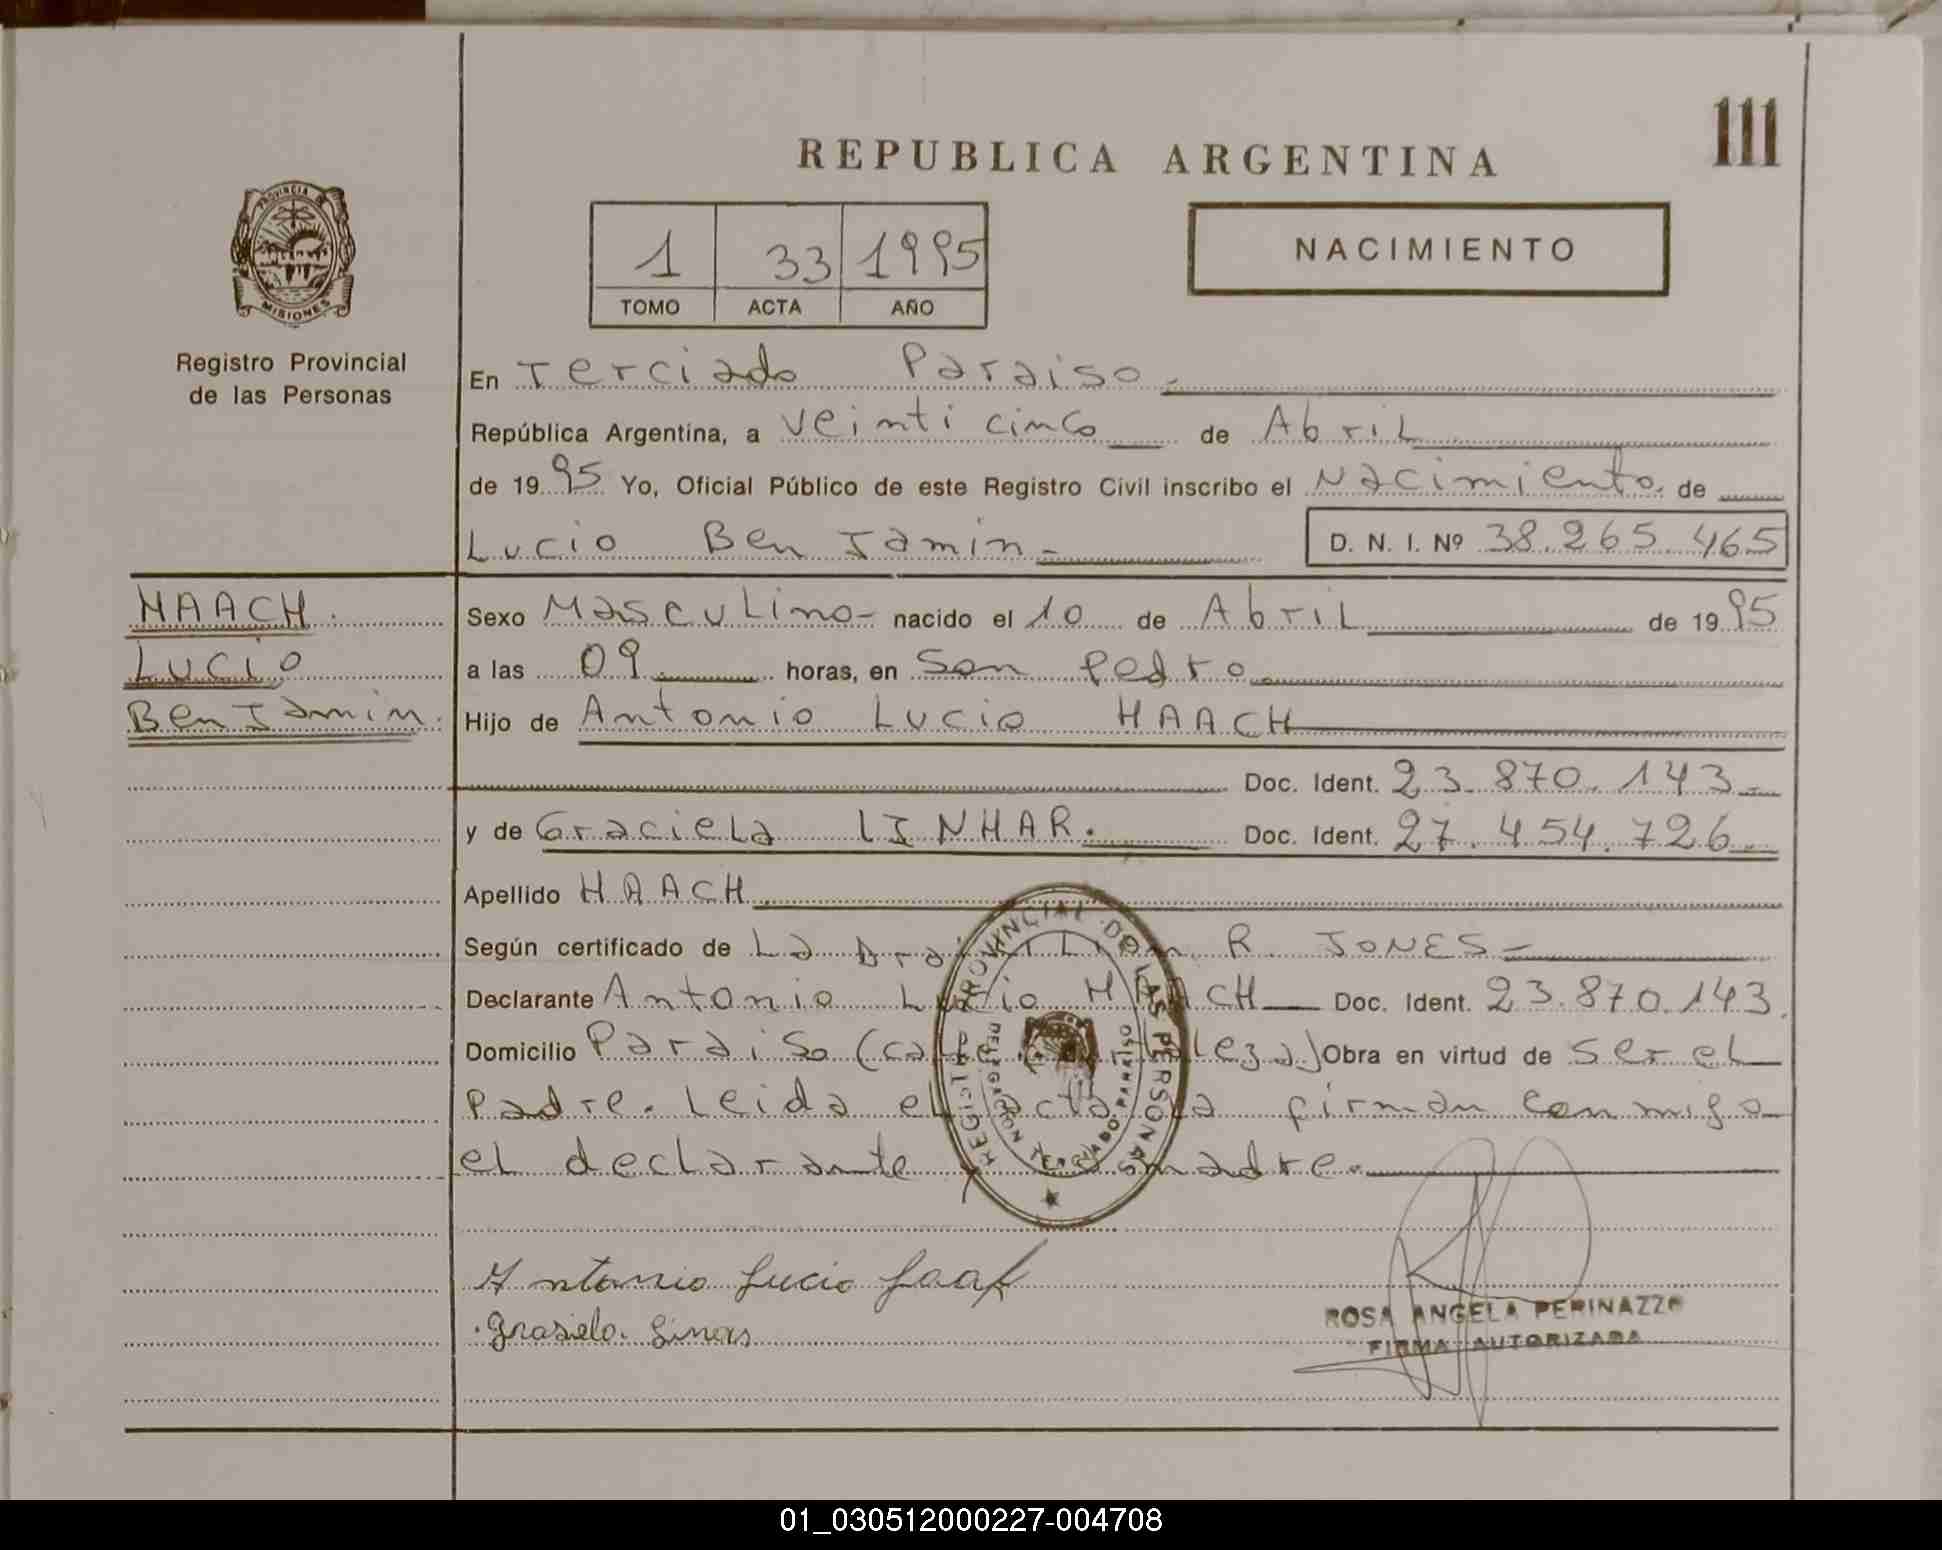 111
REPUBLICA ARGENTINA
PROVINCIA DE
MISIONES
Registro Provincial
de las Personas
1 33 1995
TOMO ACTA AÑO
NACIMIENTO
En Terciado Paraiso
República Argentina, a veinti cinco de Abril
de 1995 Yo, Oficial Público de este Registro Civil inscribo el Nacimiento de
Lucio Benjamin D. N. I. Nº 38.265.465
HAACH
Lucio
Benjamin
Sexo Masculino nacido el 10 de Abril de 1995
a las 09 horas, en San Pedro
Hijo de Antonio Lucio HAACH
Doc. Ident. 23.870.143
y de Graciela LINHAR. Doc. Ident. 27.454.726
Apellido HAACH
Según certificado de La Dra R. JONES
Declarante Antonio Lucio HAACH Doc. Ident. 23.870.143.
Domicilio Paraiso Obra en virtud de ser el
Padre. Leida el acta la firman conmigo
el declarante y la madre.
REGISTRO PROVINCIAL DE LAS PERSONAS
DELEGACION TERCIADO PARAISO
Antonio Lucio
ROSA ANGELA PERINAZZO
FIRMA AUTORIZADA
01_030512000227-004708